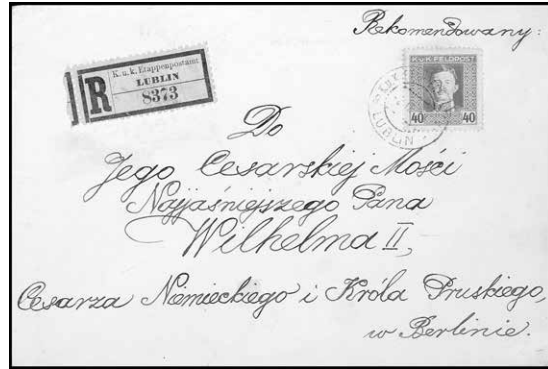 Rekomendowany:
K.u.k. Etappenpostamt
R LUBLIN
8373
K.U.K. FELDPOST
40 40
LUBLIN
Do
Jego Cesarskiej Mości
Najjaśniejszego Pana
Wilhelma II,
Cesarza Niemieckiego i Króla Pruskiego,
w Berlinie.